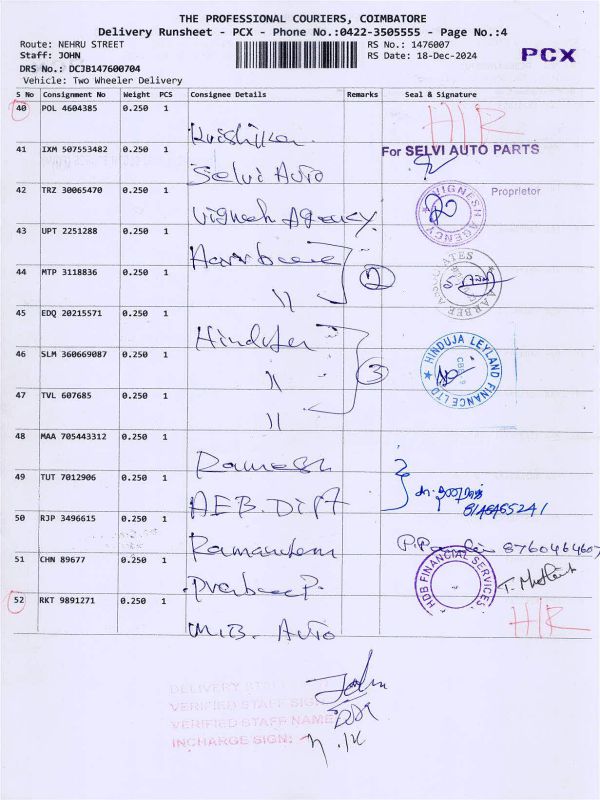 THE PROFESSIONAL COURIERS, COIMBATORE
Delivery Runsheet - PCX - Phone No.:0422-3505555 - Page No.:4
Route: NEHRU STREET RS No.: 1476007
Staff: JOHN RS Date: 18-Dec-2024 PCX
DRS No.: DCJB147600704
Vehicle: Two Wheeler Delivery
S No Consignment No Weight PCS Consignee Details Remarks Seal & Signature
40 POL 4604385 0.250 1 H/R
41 IXM 507553482 0.250 1 Selvi Auto For SELVI AUTO PARTS
Proprietor
42 TRZ 30065470 0.250 1 Vignesh Agency VIGNESH AGENCY
43 UPT 2251288 0.250 1 2
44 MTP 3118836 0.250 1 〃 AARBEE ASSOCIATES
45 EDQ 20215571 0.250 1 Hinduja
46 SLM 360669087 0.250 1 〃 3 HINDUJA LEYLAND FINANCE LTD
47 TVL 607685 0.250 1 〃
48 MAA 705443312 0.250 1 Ramesh
49 TUT 7012906 0.250 1 AEB. DIPT 8146465241
50 RJP 3496615 0.250 1 8760464607
51 CHN 89677 0.250 1 HDB FINANCIAL SERVICES
52 RKT 9891271 0.250 1 M.B. Auto H/R
DELIVERY STAFF John
VERIFIED STAFF SIGN
VERIFIED STAFF NAME
INCHARGE SIGN: